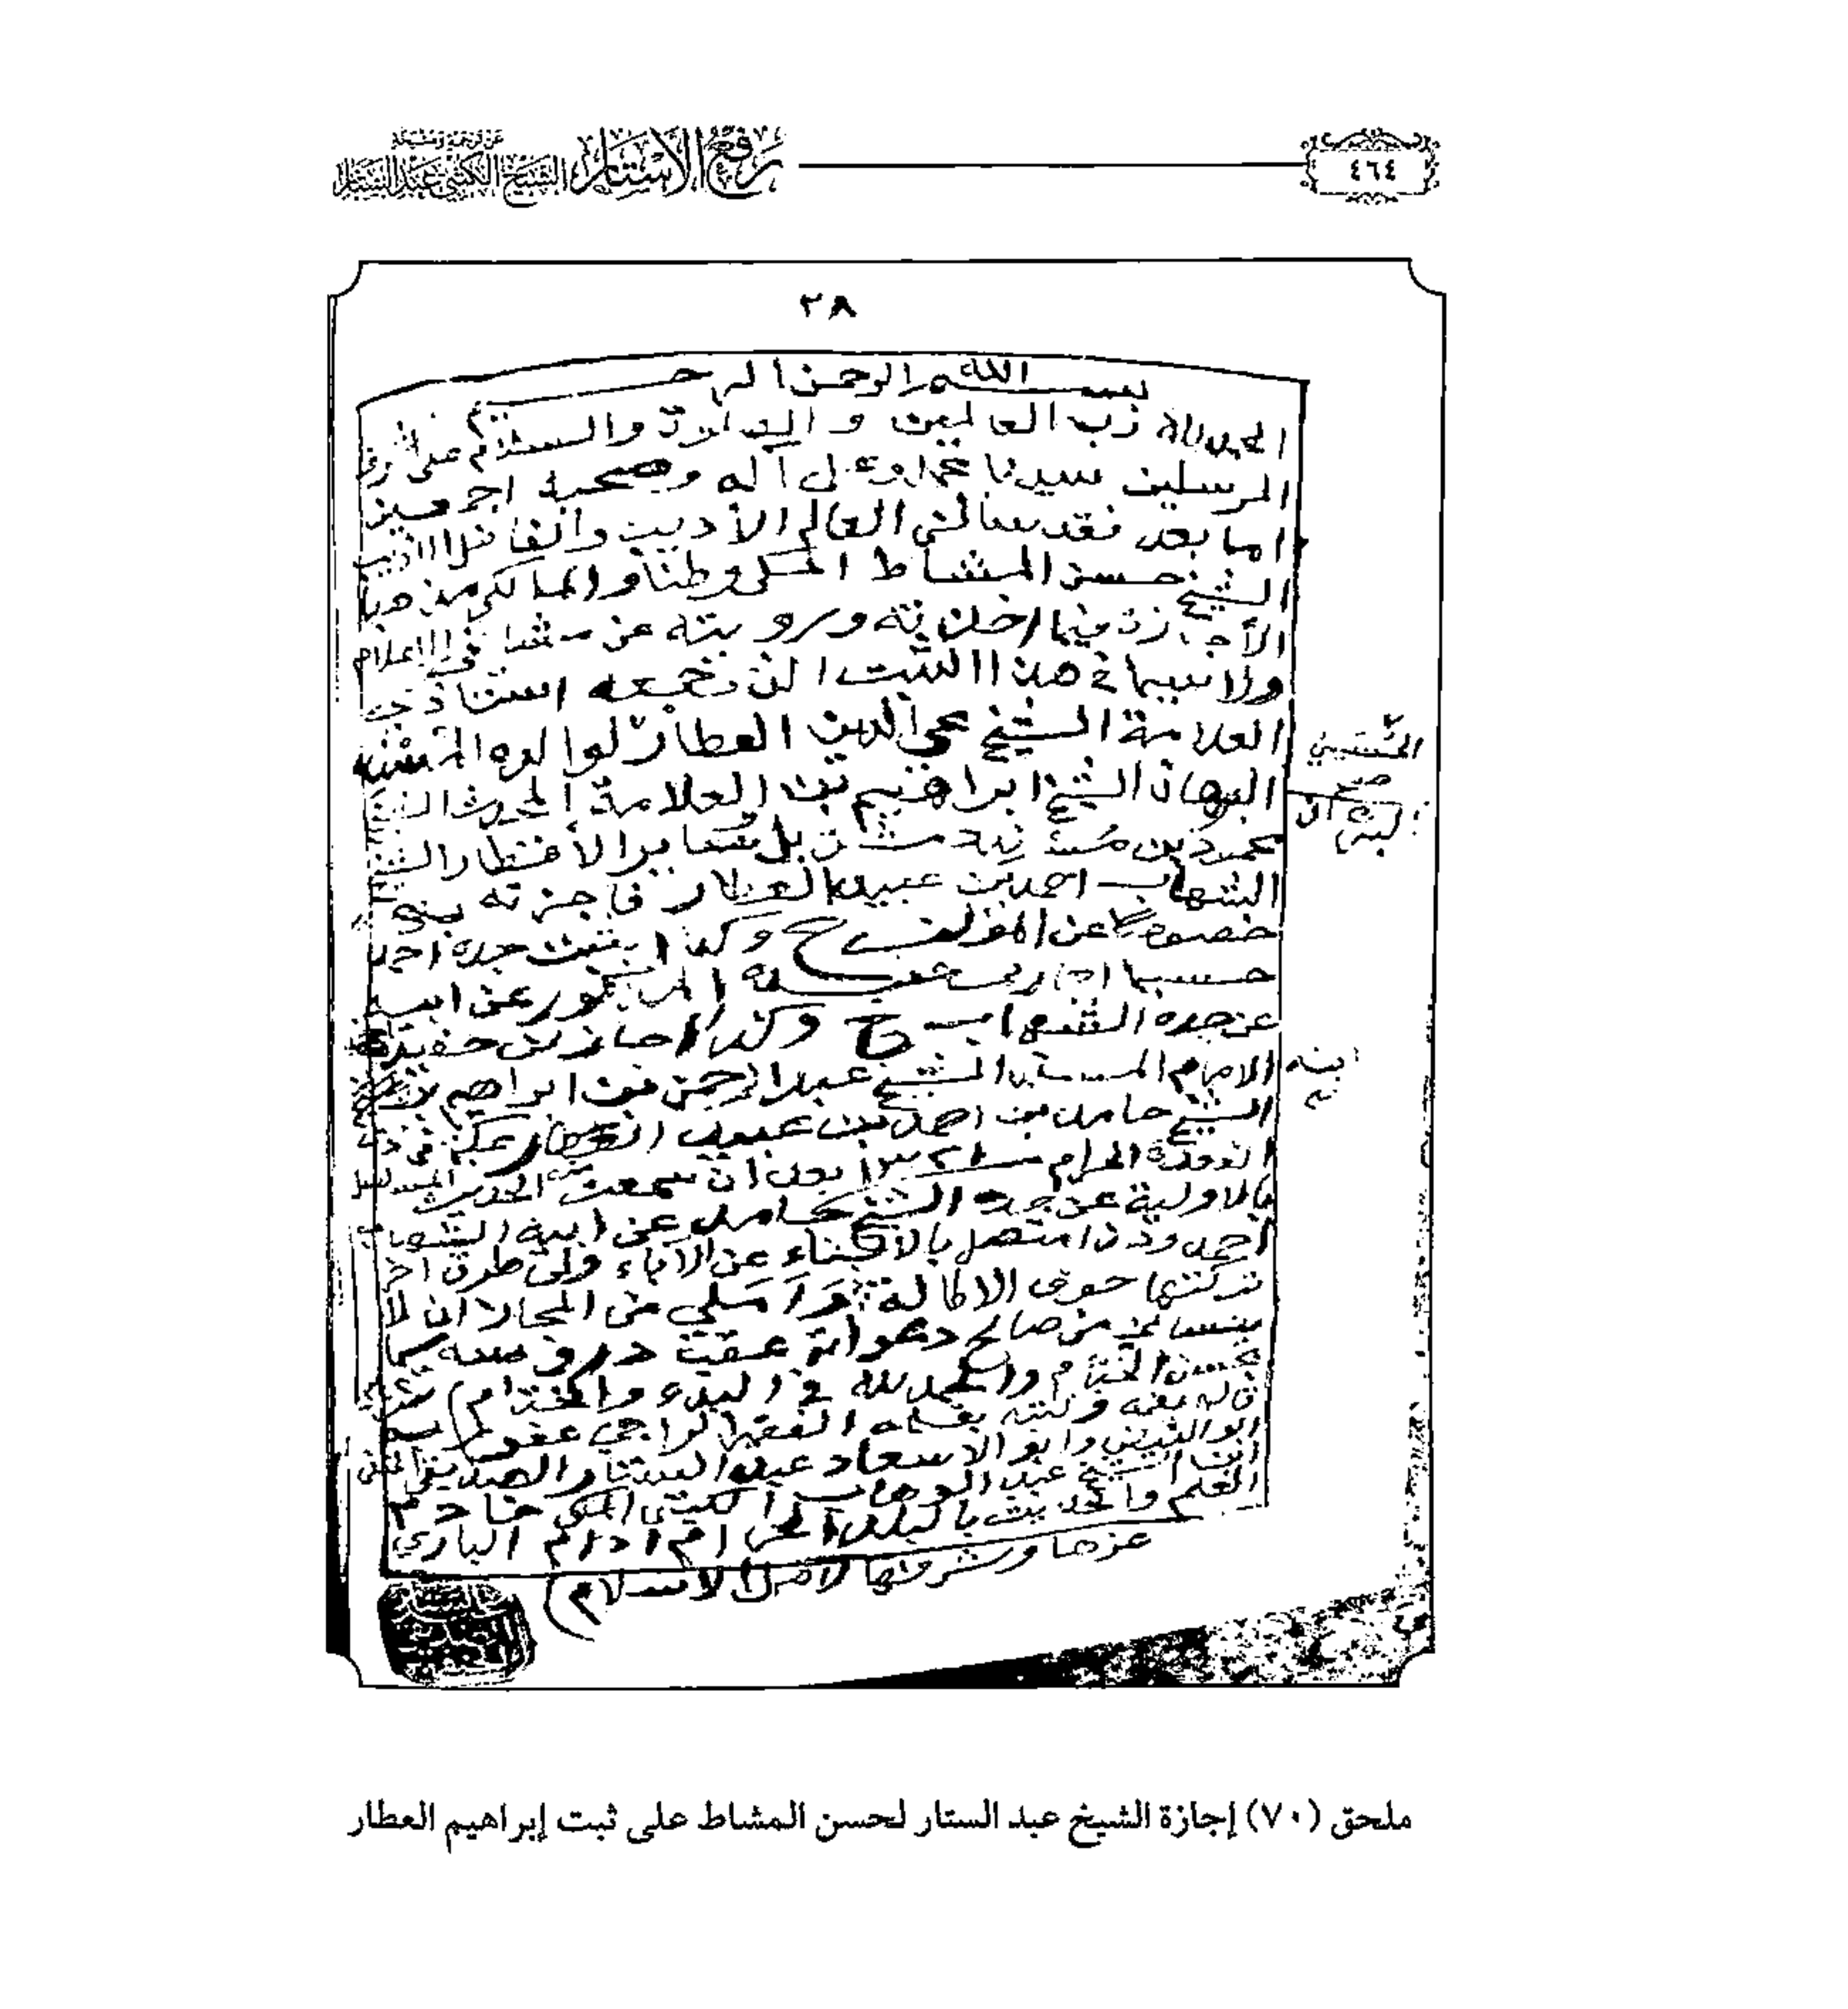 ٤٦٤
رفع الأستار
الشيخ الكتبي عبد الستار
٢٨
بسم الله الرحمن الرحيم
الحمد لله رب العالمين والصلوة والسلام على اشرف
المرسلين سيدنا محمد وعلى آله وصحبه اجمعين
اما بعد فقد سألني العالم الأديب والفاضل الأريب
الشيخ حسن المشاط المكي وطنا والمالكي مذهبا
الأجازة فيما اخذته ورويته عن مشايخي الاعلام
ولا سيما في هذا الثبت الذي جمعه استاذي
العلامة الشيخ محي الدين العطار لوالده المسند
البرهان الشيخ ابراهيم بن العلامة المحدث الشيخ
محمود بن مسند دمشق بل سائر الأقطار الشيخ
الشهاب احمد بن عبيد العطار فاجزته
خصوصا عن المؤلف ح وكذا بثبت جده احمد
حسبما اجازني عنه المذكور عن ابيه
عن جده الشهاب ح وكذا اجازني حفيد
الامام المسند الشيخ عبد الرحمن بن ابراهيم بن
الشيخ حامد بن احمد بن عبيد العطار بمكة في ذي
القعدة الحرام بعد ان سمعت منه الحديث المسلسل
بالاولية عن جده الشيخ حامد عن ابيه الشهاب
احمد وهذا متصل بالابناء عن الآباء ولي طرق اخر
تركتها خوف الاطالة و من المجاز ان لا
ينساني من صالح دعواته عقب دروسه
بحسن الختام والحمد لله في البدء والختام
قاله بفمه وكتبه بقلمه الفقير الراجي عفو
ابو الفيض وابو الاسعاد عبد الستار الصديقي الحنفي
ابن الشيخ عبد الوهاب الكتبي المكي خادم
العلم والحديث بالبلد الحرام ادام الباري
عزها وشرفها لاهل الاسلام
ابنه
ملحق (٧٠) إجازة الشيخ عبد الستار لحسن المشاط على ثبت إبراهيم العطار